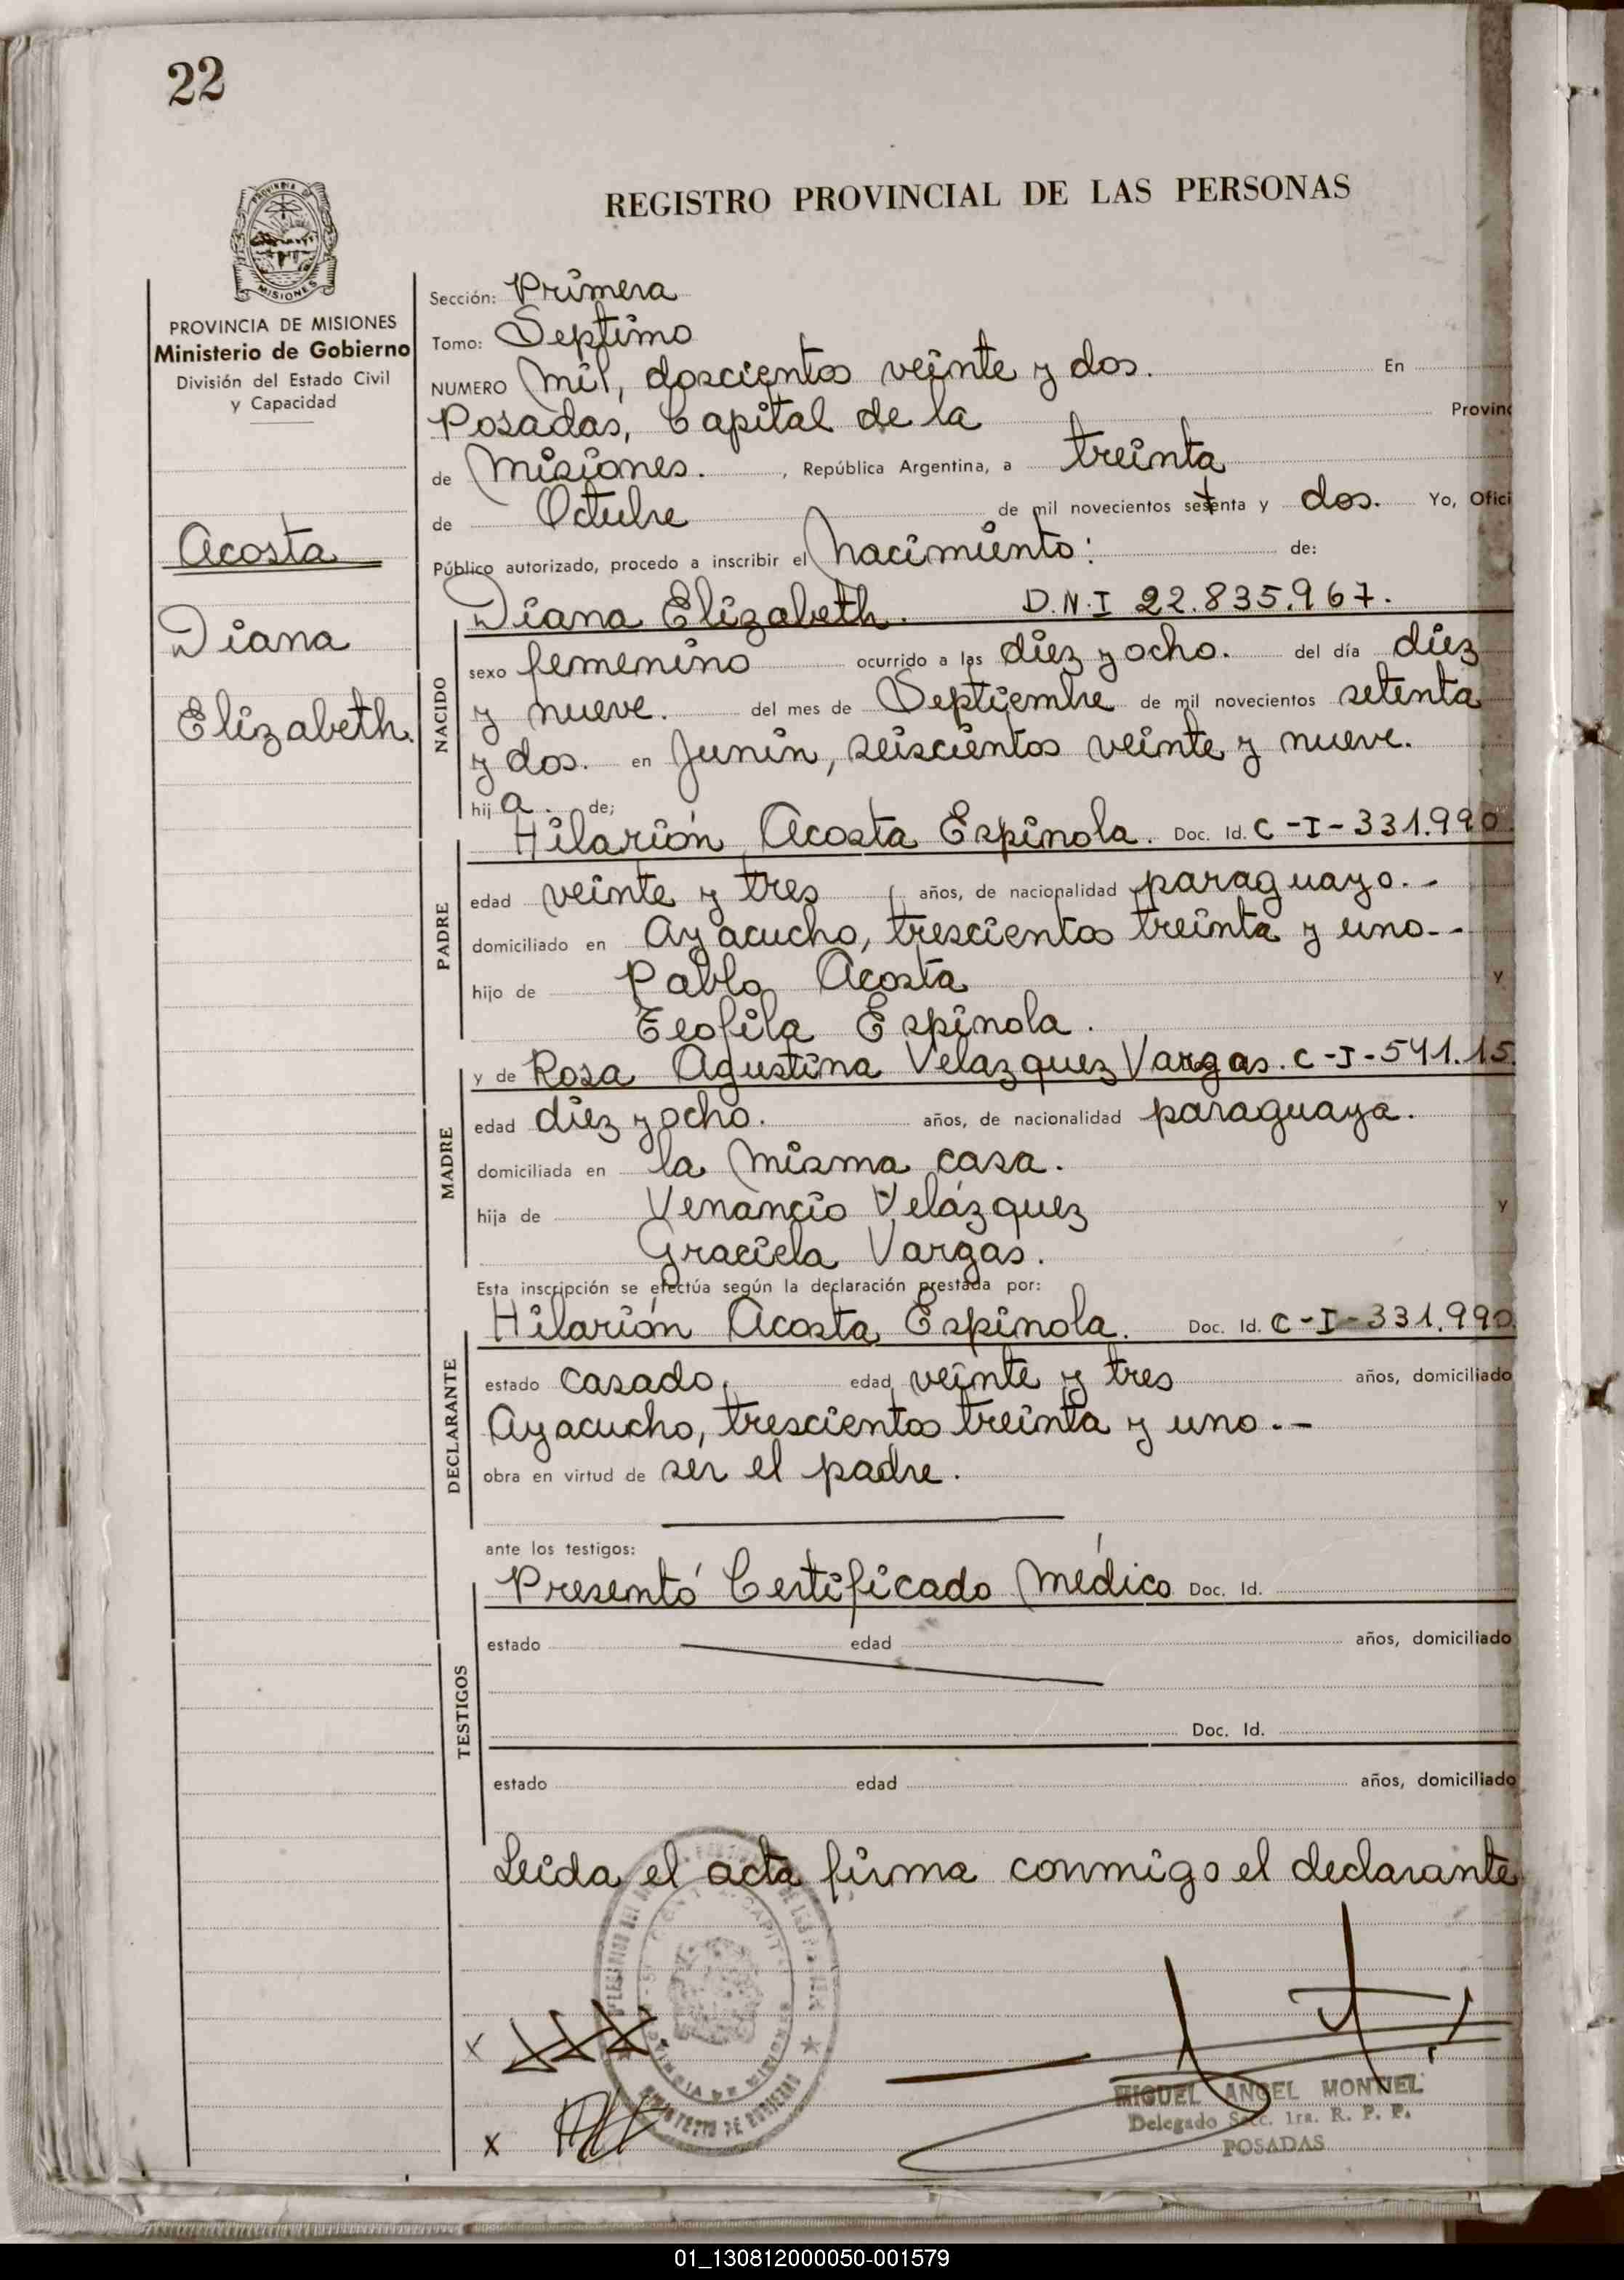 22
PROVINCIA DE
MISIONES
REGISTRO PROVINCIAL DE LAS PERSONAS
PROVINCIA DE MISIONES
Ministerio de Gobierno
División del Estado Civil
y Capacidad
Acosta
Diana
Elizabeth.
Sección: Primera
Tomo: Septimo
NUMERO mil, doscientos veinte y dos. En
Posadas, Capital de la Provinc
de Misiones. , República Argentina, a treinta
de Octubre de mil novecientos setenta y dos. Yo, Ofici
Público autorizado, procedo a inscribir el nacimiento: de:
NACIDO
Diana Elizabeth. D.N.I 22.835.967.
sexo femenino ocurrido a las diez y ocho. del día diez
y nueve. del mes de Septiembre de mil novecientos setenta
y dos. en Junin, seiscientos veinte y nueve.
hij a. de;
PADRE
Hilarión Acosta Espinola. Doc. Id. C-I-331.990.
edad veinte y tres años, de nacionalidad paraguayo.-
domiciliado en Ayacucho, trescientos treinta y uno--
hijo de Pablo Acosta y
Teofila Espinola.
MADRE
y de Rosa Agustina Velazquez Vargas. C-I-541.15
edad diez y ocho. años, de nacionalidad paraguaya.
domiciliada en la misma casa.
hija de Venancio Velázquez y
Graciela Vargas.
Esta inscripción se efectúa según la declaración prestada por:
DECLARANTE
Hilarión Acosta Espinola. Doc. Id. C-I-331.990.
estado casado. edad veinte y tres años, domiciliado
Ayacucho, trescientos treinta y uno.-
obra en virtud de ser el padre.
ante los testigos:
TESTIGOS
Presentó Certificado Médico Doc. Id.
estado edad años, domiciliado
Doc. Id.
estado edad años, domiciliado
Leida el acta firma conmigo el declarante
x
x
MINISTERIO DE GOBIERNO
MIGUEL ANGEL MONTIEL
Delegado Secc. 1ra. R. P. P.
POSADAS
01_130812000050-001579